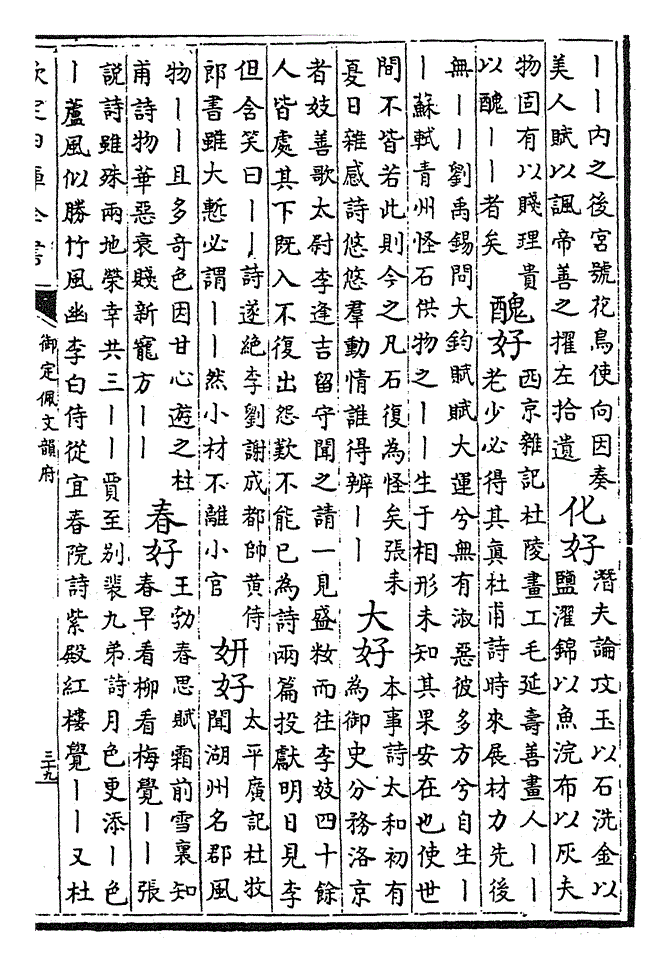 丨丨内之後宮號花鳥使向因奏
美人賦以諷帝善之擢左拾遺
化好
潛夫論攻玉以石洗金以
鹽濯錦以魚浣布以灰夫
物固有以賤理貴
以醜丨丨者矣
醜好
西京雜記杜陵畫工毛延壽善畫人丨丨
老少必得其真杜甫詩時來展材力先後
無丨丨劉禹錫問大鈞賦賦大運兮無有淑惡彼多方兮自生丨
丨蘇軾青州怪石供物之丨丨生于相形未知其果安在也使世
間不皆若此則今之凡石復為怪矣張耒
夏日雜感詩悠悠羣動情誰得辨丨丨
大好
本事詩太和初有
為御史分務洛京
者妓善歌太尉李逢吉留守聞之請一見盛粧而往李妓四十餘
人皆處其下既入不復出怨歎不能已為詩兩篇投獻明日見李
但含笑曰丨丨詩遂絶李劉謝成都帥黄侍
郎書雖大慙必謂丨丨然小材不離小官
妍好
太平廣記杜牧
聞湖州名郡風
物丨丨且多奇色因甘心遊之杜
甫詩物華惡衰賤新寵方丨丨
春好
王勃春思賦霜前雪裏知
春早看柳看梅覺丨丨張
説詩雖殊兩地榮幸共三丨丨賈至别裴九弟詩月色更添丨色
丨蘆風似勝竹風幽李白侍從宜春院詩紫殿紅樓覺丨丨又杜
欽定四庫全書
御定佩文韻府
三十九